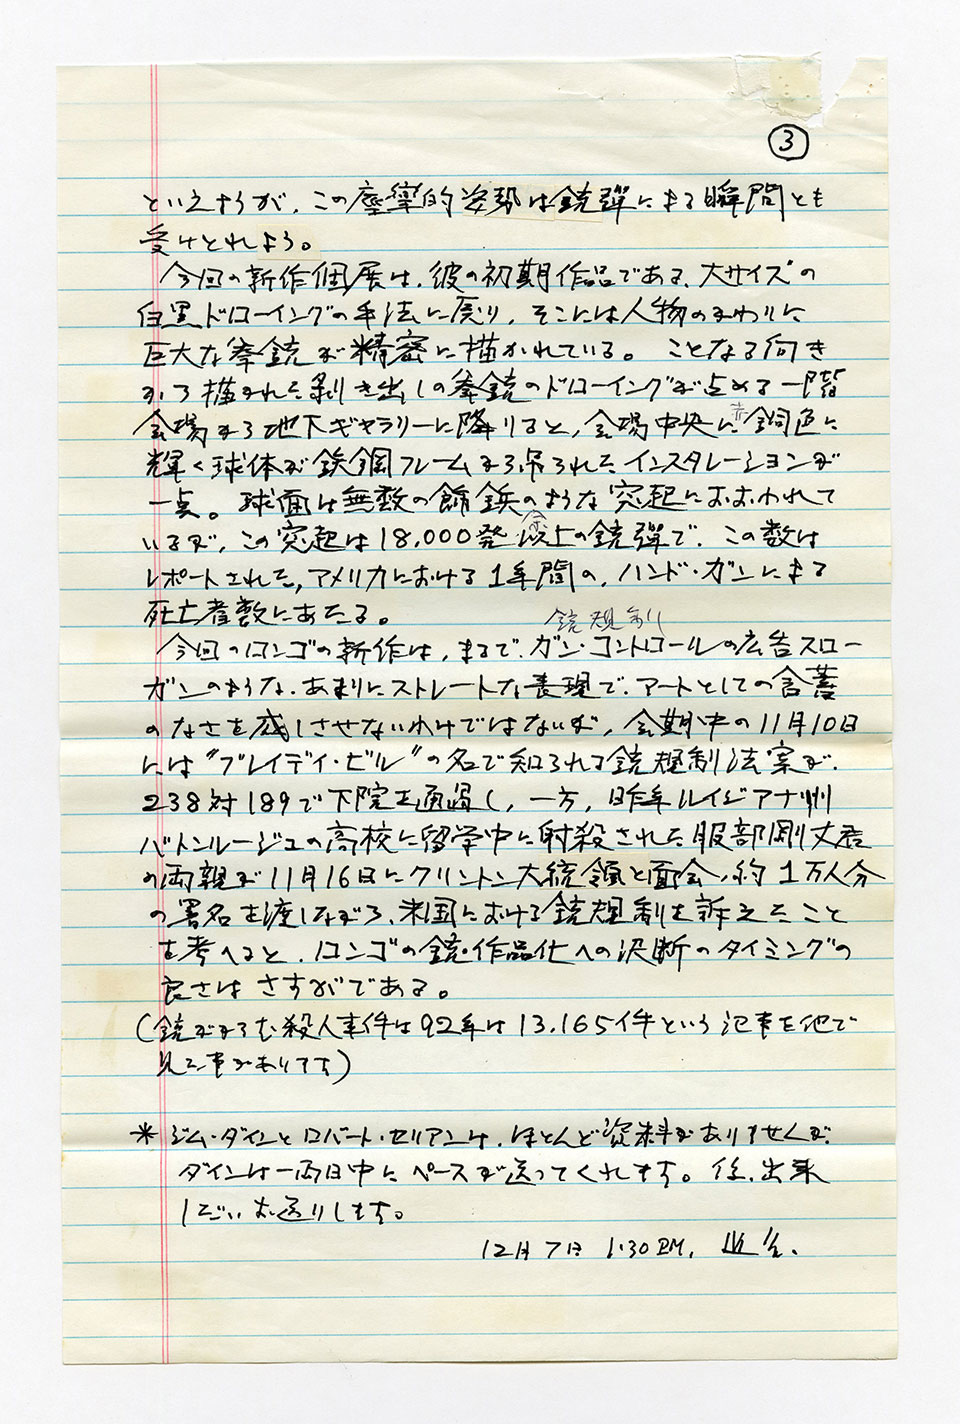 ③
といえようが、この痙攣的姿勢は銃弾による瞬間とも
受けとれよう。
今回の新作個展は、彼の初期作品である、大サイズの
白黒ドローイングの手法に戻り、そこには人物のかわりに
巨大な拳銃が精密に描かれている。ことなる向き
から描かれた剥き出しの拳銃のドローイングが占める一階
会場から地下ギャラリーに降りると、会場中央に赤銅色に
輝く球体が鉄鋼フレームから吊られたインスタレーションが
一点。球面は無数の飾鋲のような突起におおわれて
いるが、この突起は18,000発以上の銃弾で、この数は
レポートされた、アメリカにおける1年間の、ハンド・ガンによる
死亡者数にあたる。
銃規制
今回のロンゴの新作は、まるで、ガン・コントロールの広告スロー
ガンのような、あまりにストレートな表現で、アートとしての含蓄
のなさを感じさせないわけではないが、会期中の11月10日
には"ブレイディ・ビル"の名で知られる銃規制法案が、
238対189で下院を通過し、一方、昨年ルイジアナ州
バトンルージュの高校に留学中に射殺された服部剛丈君
の両親が11月16日にクリントン大統領と面会、約1万人分
の署名を渡しながら、米国における銃規制を訴えたこと
を考へると、ロンゴの銃・作品化への決断のタイミングの
良さはさすがである。
(銃がからむ殺人事件は92年は13.165件という記事を他で
見た事があります)
＊ジム・ダインとロバート・セリアンは、ほとんど資料がありませんが、
ダインは一両日中にペースが送ってくれます。後、出来
しだいお送りします。
12月7日 1:30PM.